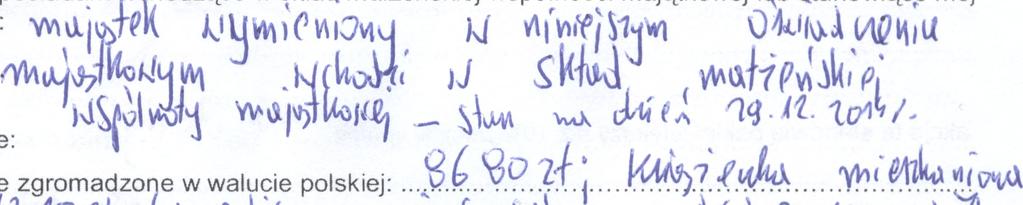 majątek wymieniony w niniejszym oświadczeniu
majątkowym wchodzi w skład małżeńskiej
wspólnoty majątkowej – stan na dzień 29.12.2014r.
e:
e zgromadzone w walucie polskiej: 8680 zł; Książeczka mieszkaniowa